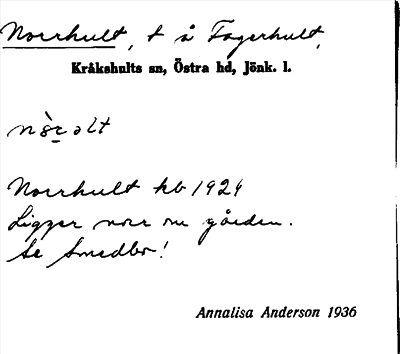 Norrhult, t å Fagerhult,
Kråkshults sn, Östra hd, Jönk. l.
nò̀rəlt
Norrhult kb 1924
Ligger norr om gården.
Se Smedbo!
Annalisa Anderson 1936